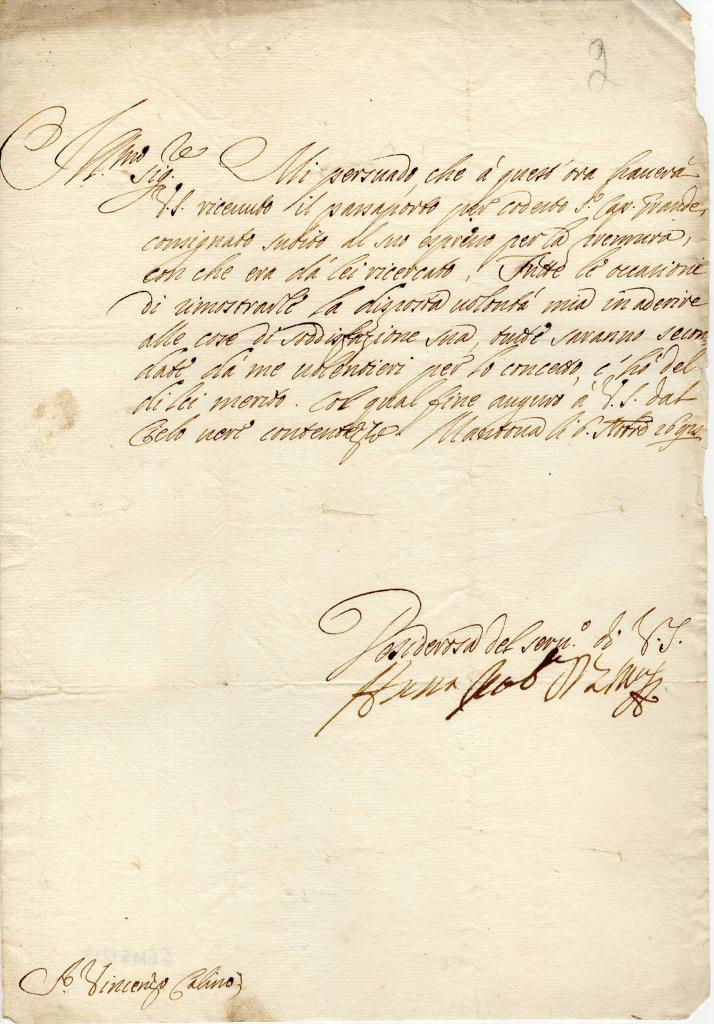 2
Ill.mo Sig.re Mi persuado, che à quest'ora haverà
V.S. riceuuto il passaporto per codesto S.r Cap. Grande,
consignato subito al suo espresso per la premura,
con che era da lei ricercato. Tutte le occasioni
di dimostrarle la disposta uolontà mia in aderire
alle cose di soddisfazione sua, tutte saranno secon
date da me uolentieri per lo concetto, c'hò del
di lei merito. Col qual fine auguro à V.S. dal
Cielo uere contentezze. Mantoua li 6.
Desiderosa del seru.o di V.S.
Anna
S.r Vincenzo Calino